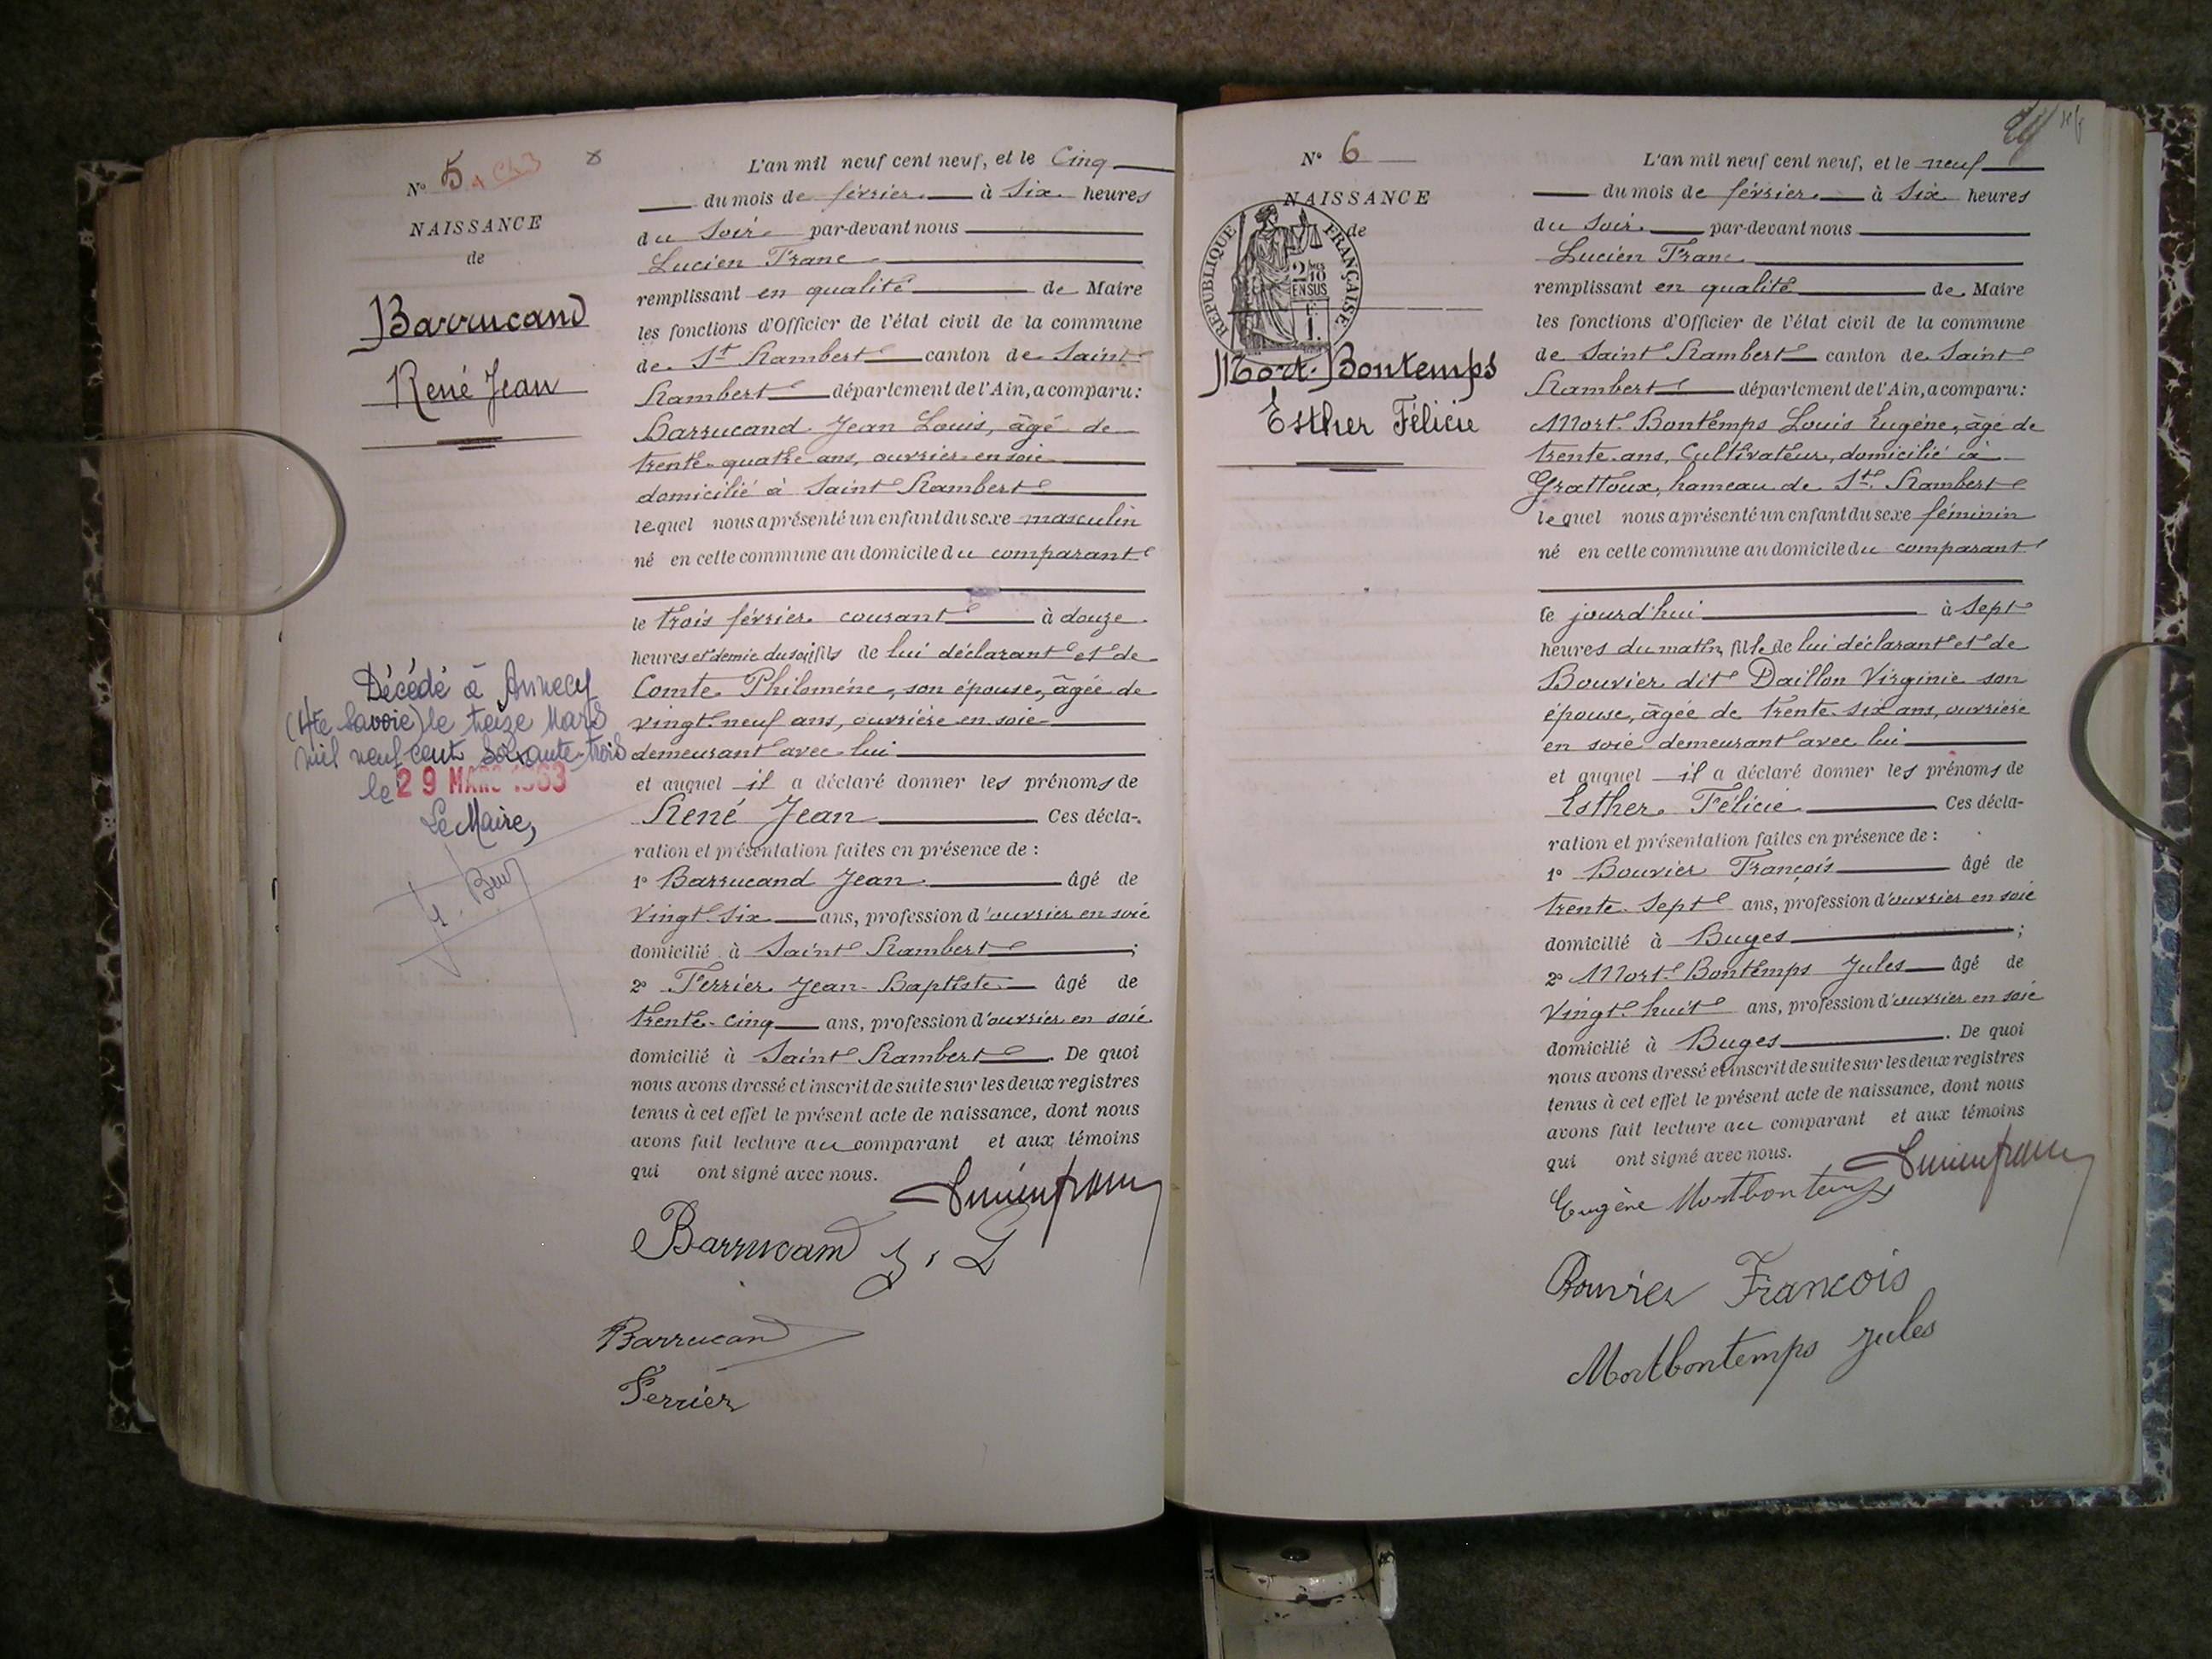 N° 5
NAISSANCE
de
Barrucand
René Jean
Décédé à Annecy
(Hte Savoie) le treize Mars
mil neuf cent soixante-trois
le 29 MARS 1963
Le Maire,
L'an mil neuf cent neuf, et le Cinq
du mois de février à Six heures
du Soir par-devant nous
Lucien Franc
remplissant en qualité de Maire
les fonctions d'Officier de l'état civil de la commune
de St Rambert canton de Saint
Rambert département de l'Ain, a comparu:
Barrucand Jean Louis, âgé de
trente-quatre ans, ouvrier en soie
domicilié à Saint Rambert
lequel nous a présenté un enfant du sexe masculin
né en cette commune au domicile du comparant
le trois février courant à douze
heures et demie du soir fils de lui déclarant et de
Comte Philomène, son épouse, âgée de
vingt-neuf ans, ouvrière en soie
demeurant avec lui
et auquel il a déclaré donner les prénoms de
René Jean Ces décla-
ration et présentation faites en présence de :
1° Barrucand Jean âgé de
vingt-six ans, profession d'ouvrier en soie
domicilié à Saint Rambert ;
2° Ferrier Jean-Baptiste âgé de
trente-cinq ans, profession d'ouvrier en soie
domicilié à Saint Rambert. De quoi
nous avons dressé et inscrit de suite sur les deux registres
tenus à cet effet le présent acte de naissance, dont nous
avons fait lecture au comparant et aux témoins
qui ont signé avec nous.
Lucien franc
Barrucand J. L
Barrucand
Ferrier
N° 6
NAISSANCE
de
RÉPUBLIQUE FRANÇAISE
2/10 EN SUS
Mort-Bontemps
Esther Félicie
L'an mil neuf cent neuf, et le neuf
du mois de février à Six heures
du Soir par-devant nous
Lucien Franc
remplissant en qualité de Maire
les fonctions d'Officier de l'état civil de la commune
de Saint Rambert canton de Saint
Rambert département de l'Ain, a comparu:
Mort-Bontemps Louis Eugène, âgé de
trente ans, Cultivateur, domicilié à
Grattoux, hameau de St. Rambert
lequel nous a présenté un enfant du sexe féminin
né en cette commune au domicile du comparant
ce jourd'hui à Sept
heures du matin, fille de lui déclarant et de
Bouvier dit Daillon Virginie son
épouse, âgée de trente-six ans, ouvrière
en soie demeurant avec lui
et auquel il a déclaré donner les prénoms de
Esther Félicie Ces décla-
ration et présentation faites en présence de :
1° Bouvier François âgé de
trente-sept ans, profession d'ouvrier en soie
domicilié à Buges ;
2° Mort-Bontemps Jules âgé de
vingt-huit ans, profession d'ouvrier en soie
domicilié à Buges. De quoi
nous avons dressé et inscrit de suite sur les deux registres
tenus à cet effet le présent acte de naissance, dont nous
avons fait lecture au comparant et aux témoins
qui ont signé avec nous.
Lucien franc
Eugène Mortbontemps
Bouvier Francois
Mortbontemps Jules